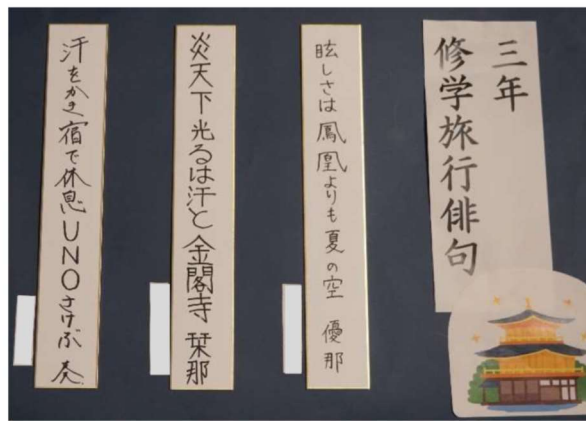 三年
修学旅行俳句
眩しさは鳳凰よりも夏の空 優那
炎天下光るは汗と金閣寺 栞那
汗をかき宿で休息UNOさけぶ 奏